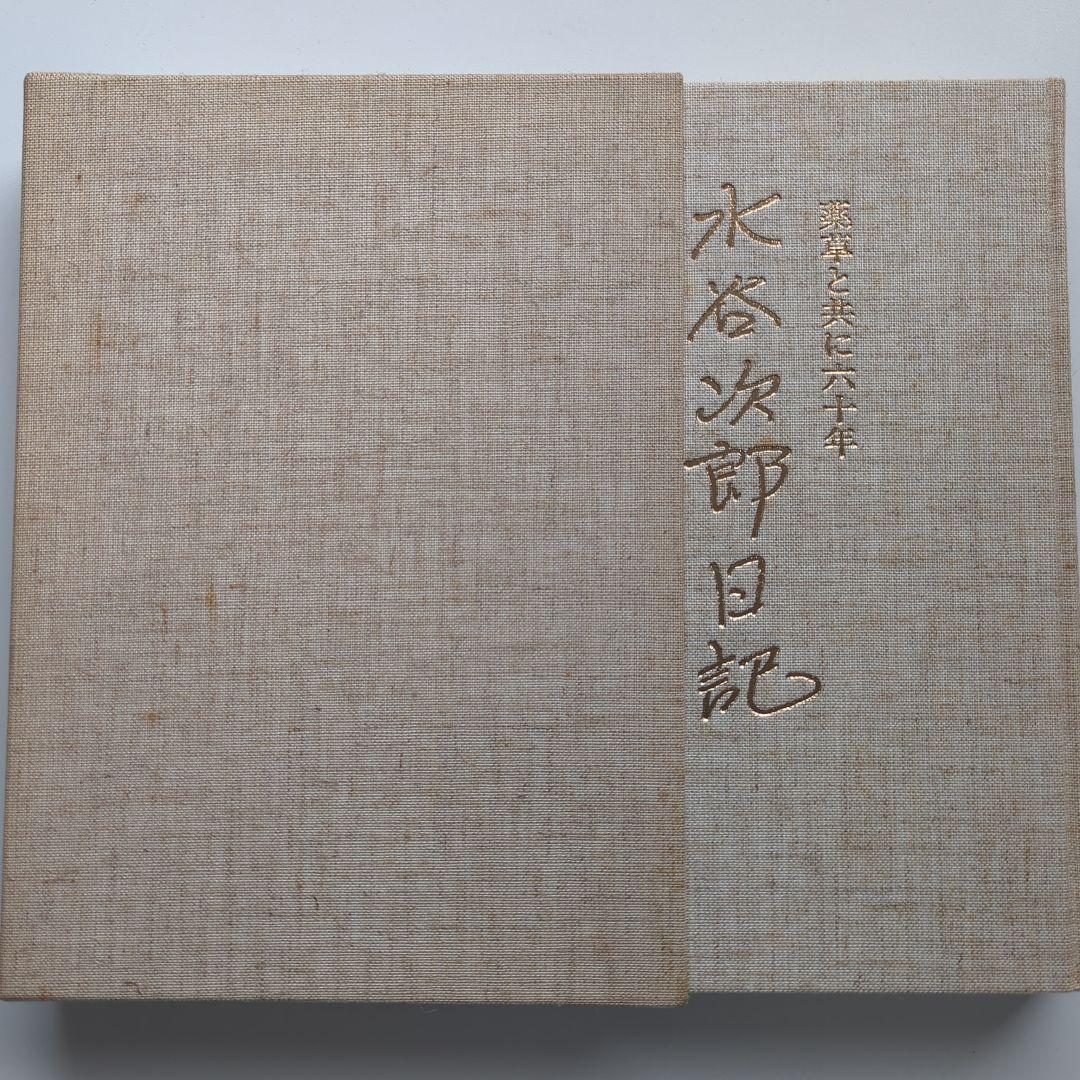 薬草と共に六十年
水谷次郎日記